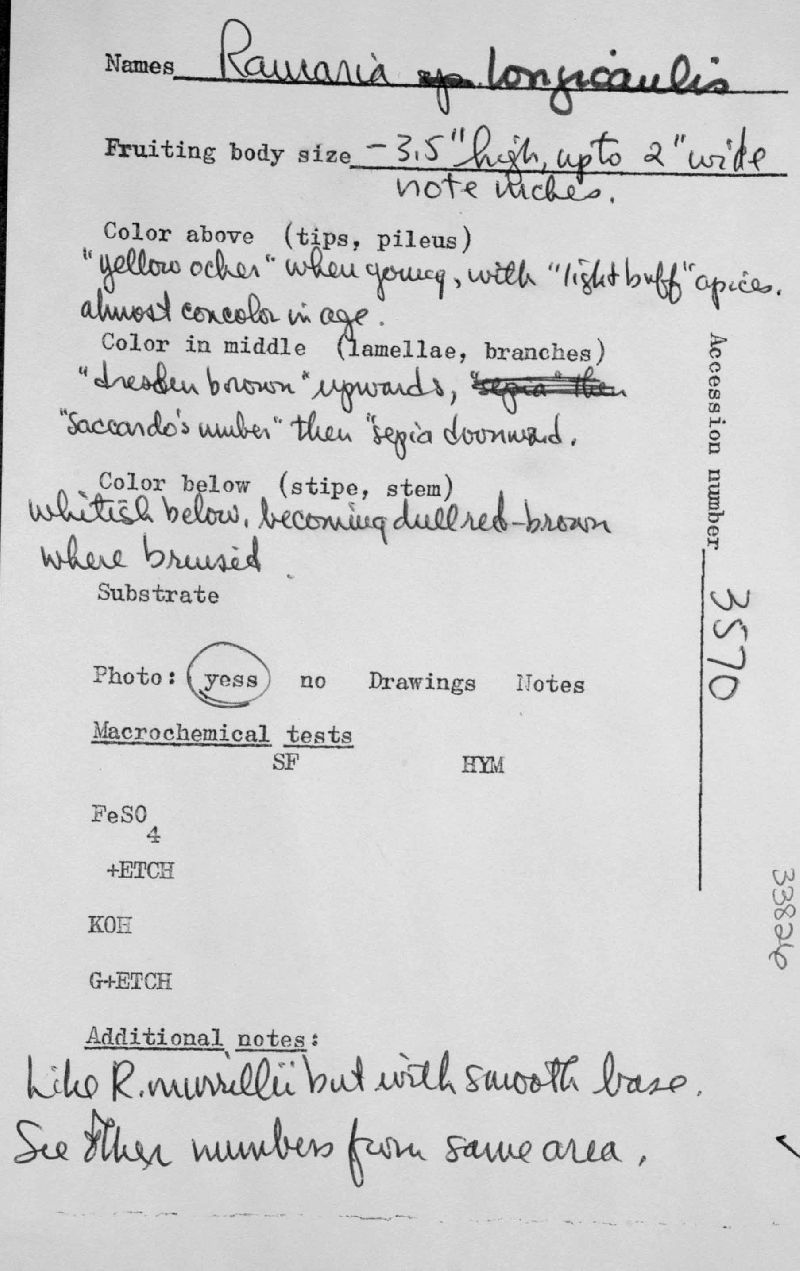 Names Ramaria sp. longicaulis
Fruiting body size -3.5" high, upto 2" wide
note inches.
Color above (tips, pileus)
"yellow ocher" when young, with "light buff" apices.
almost concolor in age.
Color in middle (lamellae, branches)
"dresden brown" upwards, "sepia" then
"Saccardo's umber" then "sepia downward.
Color below (stipe, stem)
whitish below, becoming dull red-brown
where bruised
Substrate
Photo: yess no Drawings Notes
Macrochemical tests
SF HYM
FeSO4
+ETCH
KOH
G+ETCH
Additional notes:
Like R. murrillii but with smooth base.
See other numbers from same area.
Accession number 3570
33826